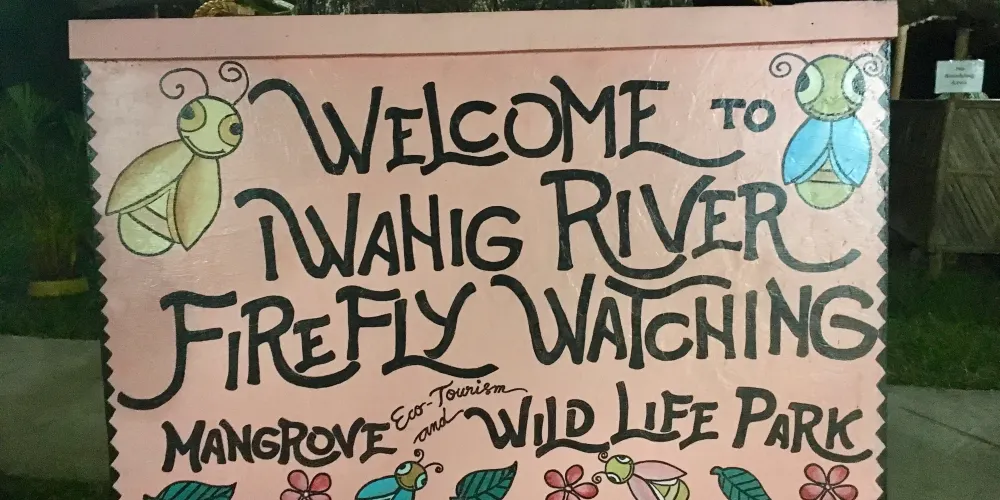 WELCOME TO
IWAHIG RIVER
FIREFLY WATCHING
MANGROVE Eco-Tourism and WILD LIFE PARK